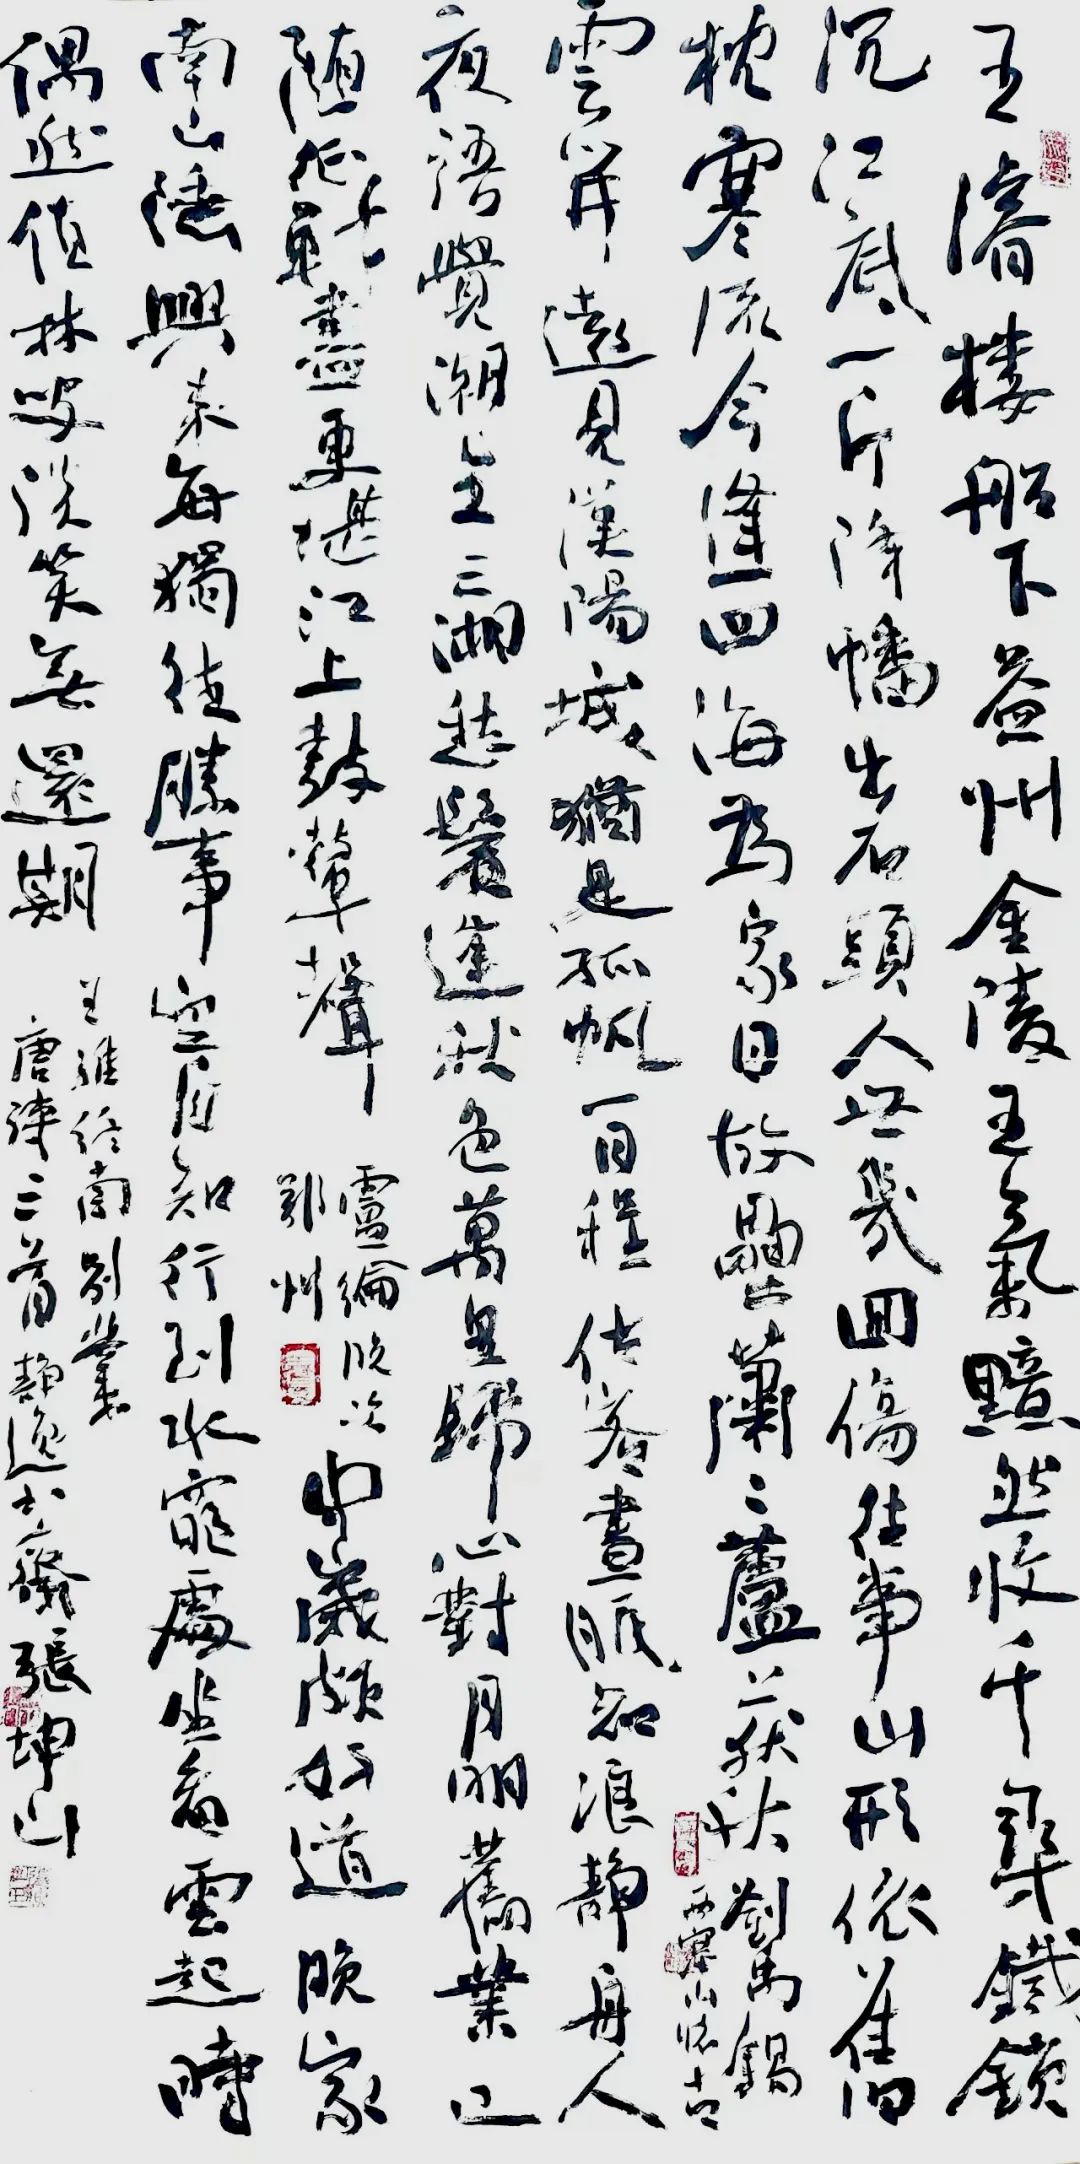 王濬楼船下益州金陵王氣黯然收千尋鐵鎖
沉江底一片降幡出石頭人世幾回傷往事山形依舊
枕寒流今逢四海為家日故壘蕭〻蘆荻秋
劉禹錫
西塞山懷古
雲開遠見漢陽城猶是孤帆一日程估客晝眠知浪靜舟人
夜語覺潮生三湘愁鬢逢秋色萬里歸心對月明舊業已
隨征戰盡更堪江上鼓鼙聲
盧綸晚次
鄂州
中歲頗好道晚家
南山陲興來每獨往勝事空自知行到水窮處坐看雲起時
偶然值林叟談笑無還期
王維終南別業
唐詩三首靜逸書齋張坤山